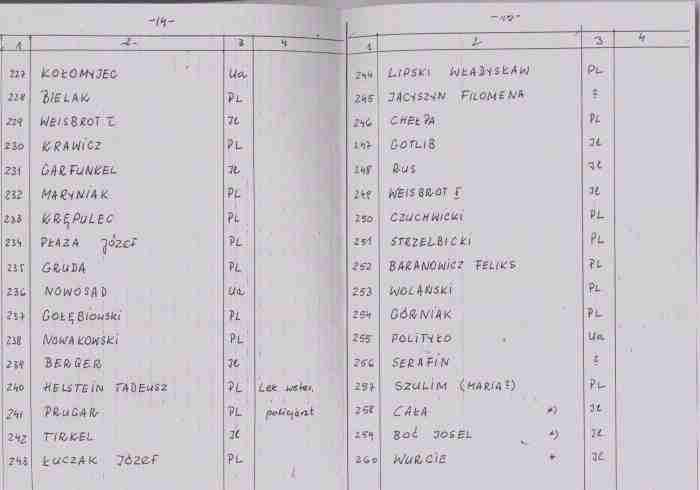 -14-
1 2 3 4
227 KOŁOMYJEC Ua
228 BIELAK PL
229 WEISBROT I Jt
230 KRAWICZ PL
231 GARFUNKEL Jt
232 MARYNIAK PL
233 KRĘPULEC PL
234 PŁAZA JÓZEF PL
235 GRUDA PL
236 NOWOSAD Ua
237 GOŁĘBIOWSKI PL
238 NOWAKOWSKI PL
239 BERGER Jt
240 HELSTEIN TADEUSZ PL Lek. weter.
241 PRUGAR PL policjant
242 TIRKEL Jt
243 ŁUCZAK JÓZEF PL
-15-
1 2 3 4
244 LIPSKI WŁADYSŁAW PL
245 JACYSZYN FILOMENA ?
246 CHEŁPA PL
247 GOTLIB Jt
248 RUS Jt
249 WEISBROT I Jt
250 CZUCHWICKI PL
251 STRZELBICKI PL
252 BARANOWICZ FELIKS PL
253 WOLAŃSKI PL
254 GÓRNIAK PL
255 POLITYŁO Ua
256 SERAFIN ?
257 SZULIM (MARIA?) PL
258 CAŁA *) Jt
259 BOĆ JOSEL *) Jt
260 WURCIE * Jt